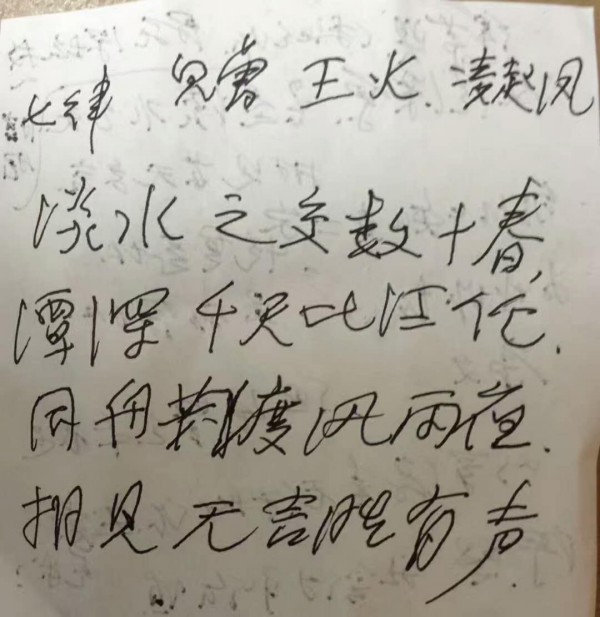 七律 见曹 王火 凌起凤
淡水之交数十春,
潭深千尺比江伦.
同舟共度风雨夜.
相见无言胜有声